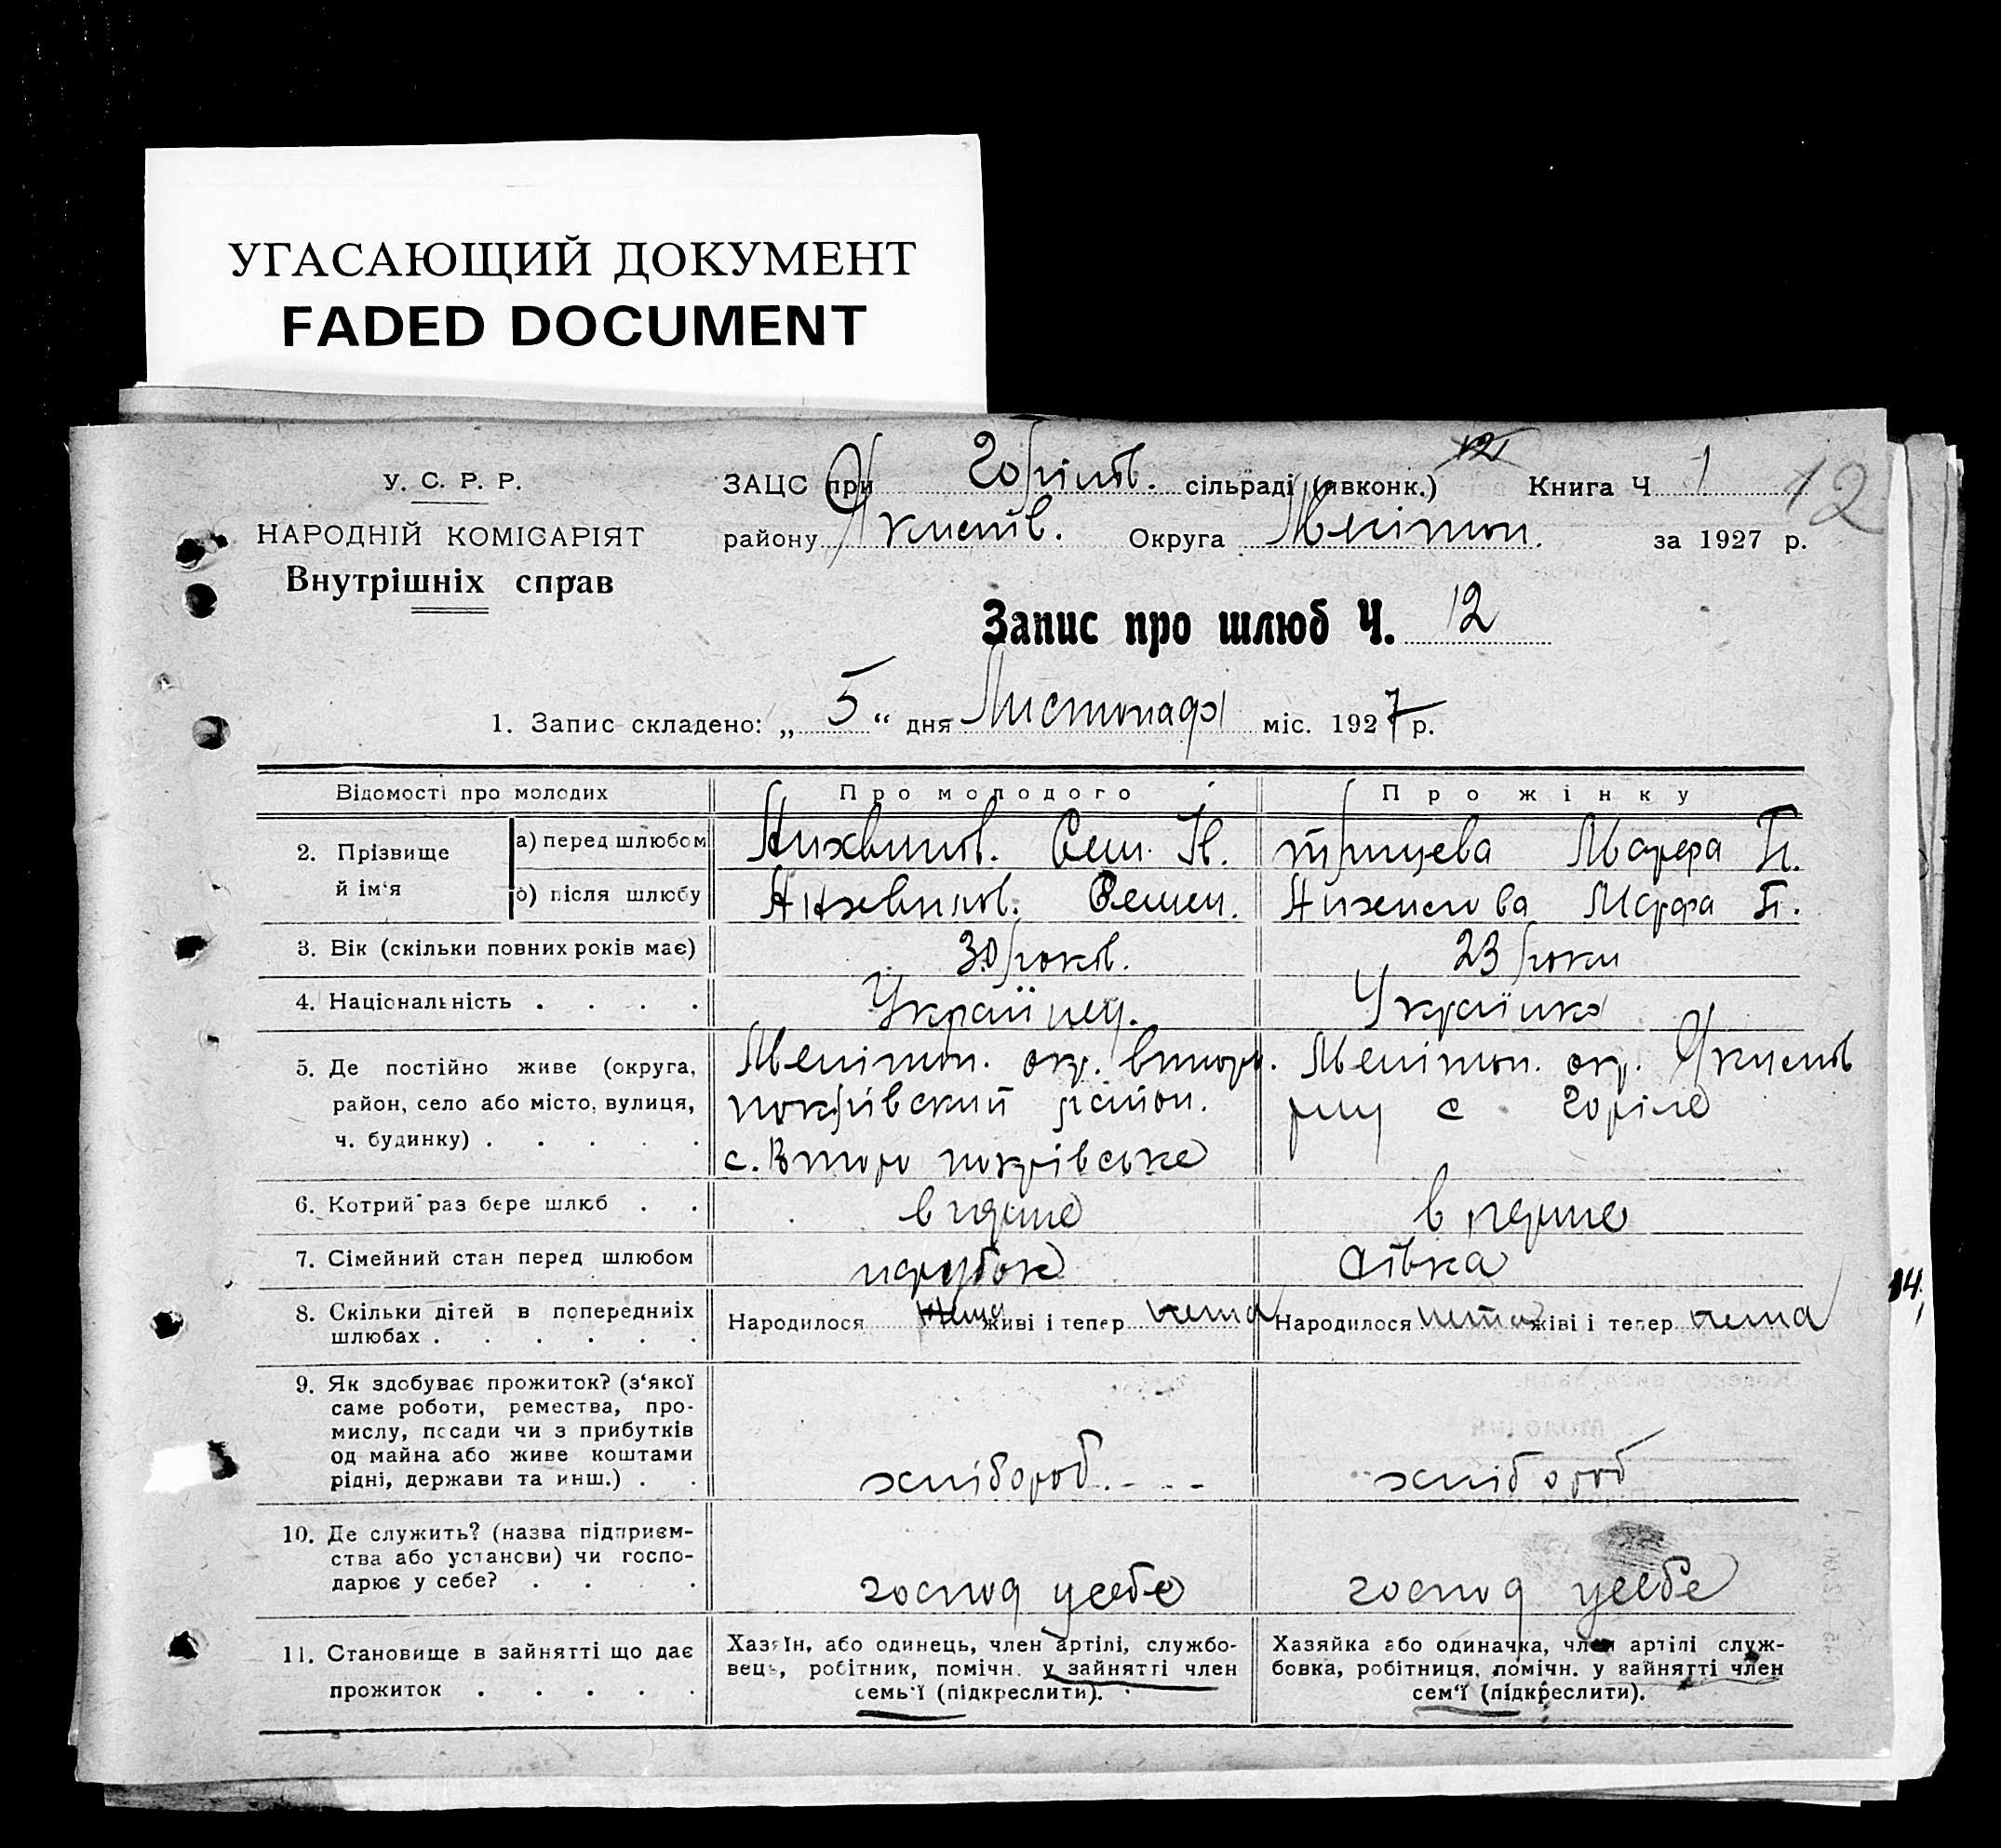 УГАСАЮЩИЙ ДОКУМЕНТ
FADED DOCUMENT
У. С. Р. Р.
НАРОДНІЙ КОМІСАРІЯТ
Внутрішніх справ
ЗАЦС при Горілів. сільраді (явконк.) 121 Книга Ч 1 12
району Якимів. Округа Мелітоп. за 1927 р.
Запис про шлюб Ч. 12
1. Запис складено: „ 5 “ дня Листопада міс. 1927 р.
Відомості про молодих Про молодого Про жінку
2. Прізвище й ім‘я
а) перед шлюбом Сем. Марфа П.
б) після шлюбу Семен. Марфа П.
3. Вік (скільки повних років має) 30 років. 23 роки
4. Національність . . . . Українец. Українка
5. Де постійно живе (округа, Мелітоп. окр. Второ. Мелітоп. окр. Якимів
район, село або місто, вулиця, покрівский район. рну с. Горіле
ч. будинку) . . . . . с. Второ покрівське
6. Котрий раз бере шлюб . . в перше в перше
7. Сімейний стан перед шлюбом парубок дівка
8. Скільки дітей в попередніх Народилося нема живі і тепер нема Народилося нема живі і тепер нема
шлюбах . . . . . .
14
9. Як здобуває прожиток? (з‘якої
саме роботи, ремества, про-
мислу, посади чи з прибутків
од майна або живе коштами
рідні, держави та инш.) . . хлібороб. - - - хлібороб
10. Де служить? (назва підприєм-
ства або установи) чи госпо-
дарює у себе? . . . . господ усебе господ усебе
11. Становище в зайнятті що дає Хазяїн, або одинець, член артілі, службо- Хазяйка або одиначка, член артілі служ-
прожиток . . . . . вець, робітник, помічн. у зайнятті член бовка, робітниця, помічн. у зайнятті член
семь‘ї (підкреслити). сем‘ї (підкреслити).